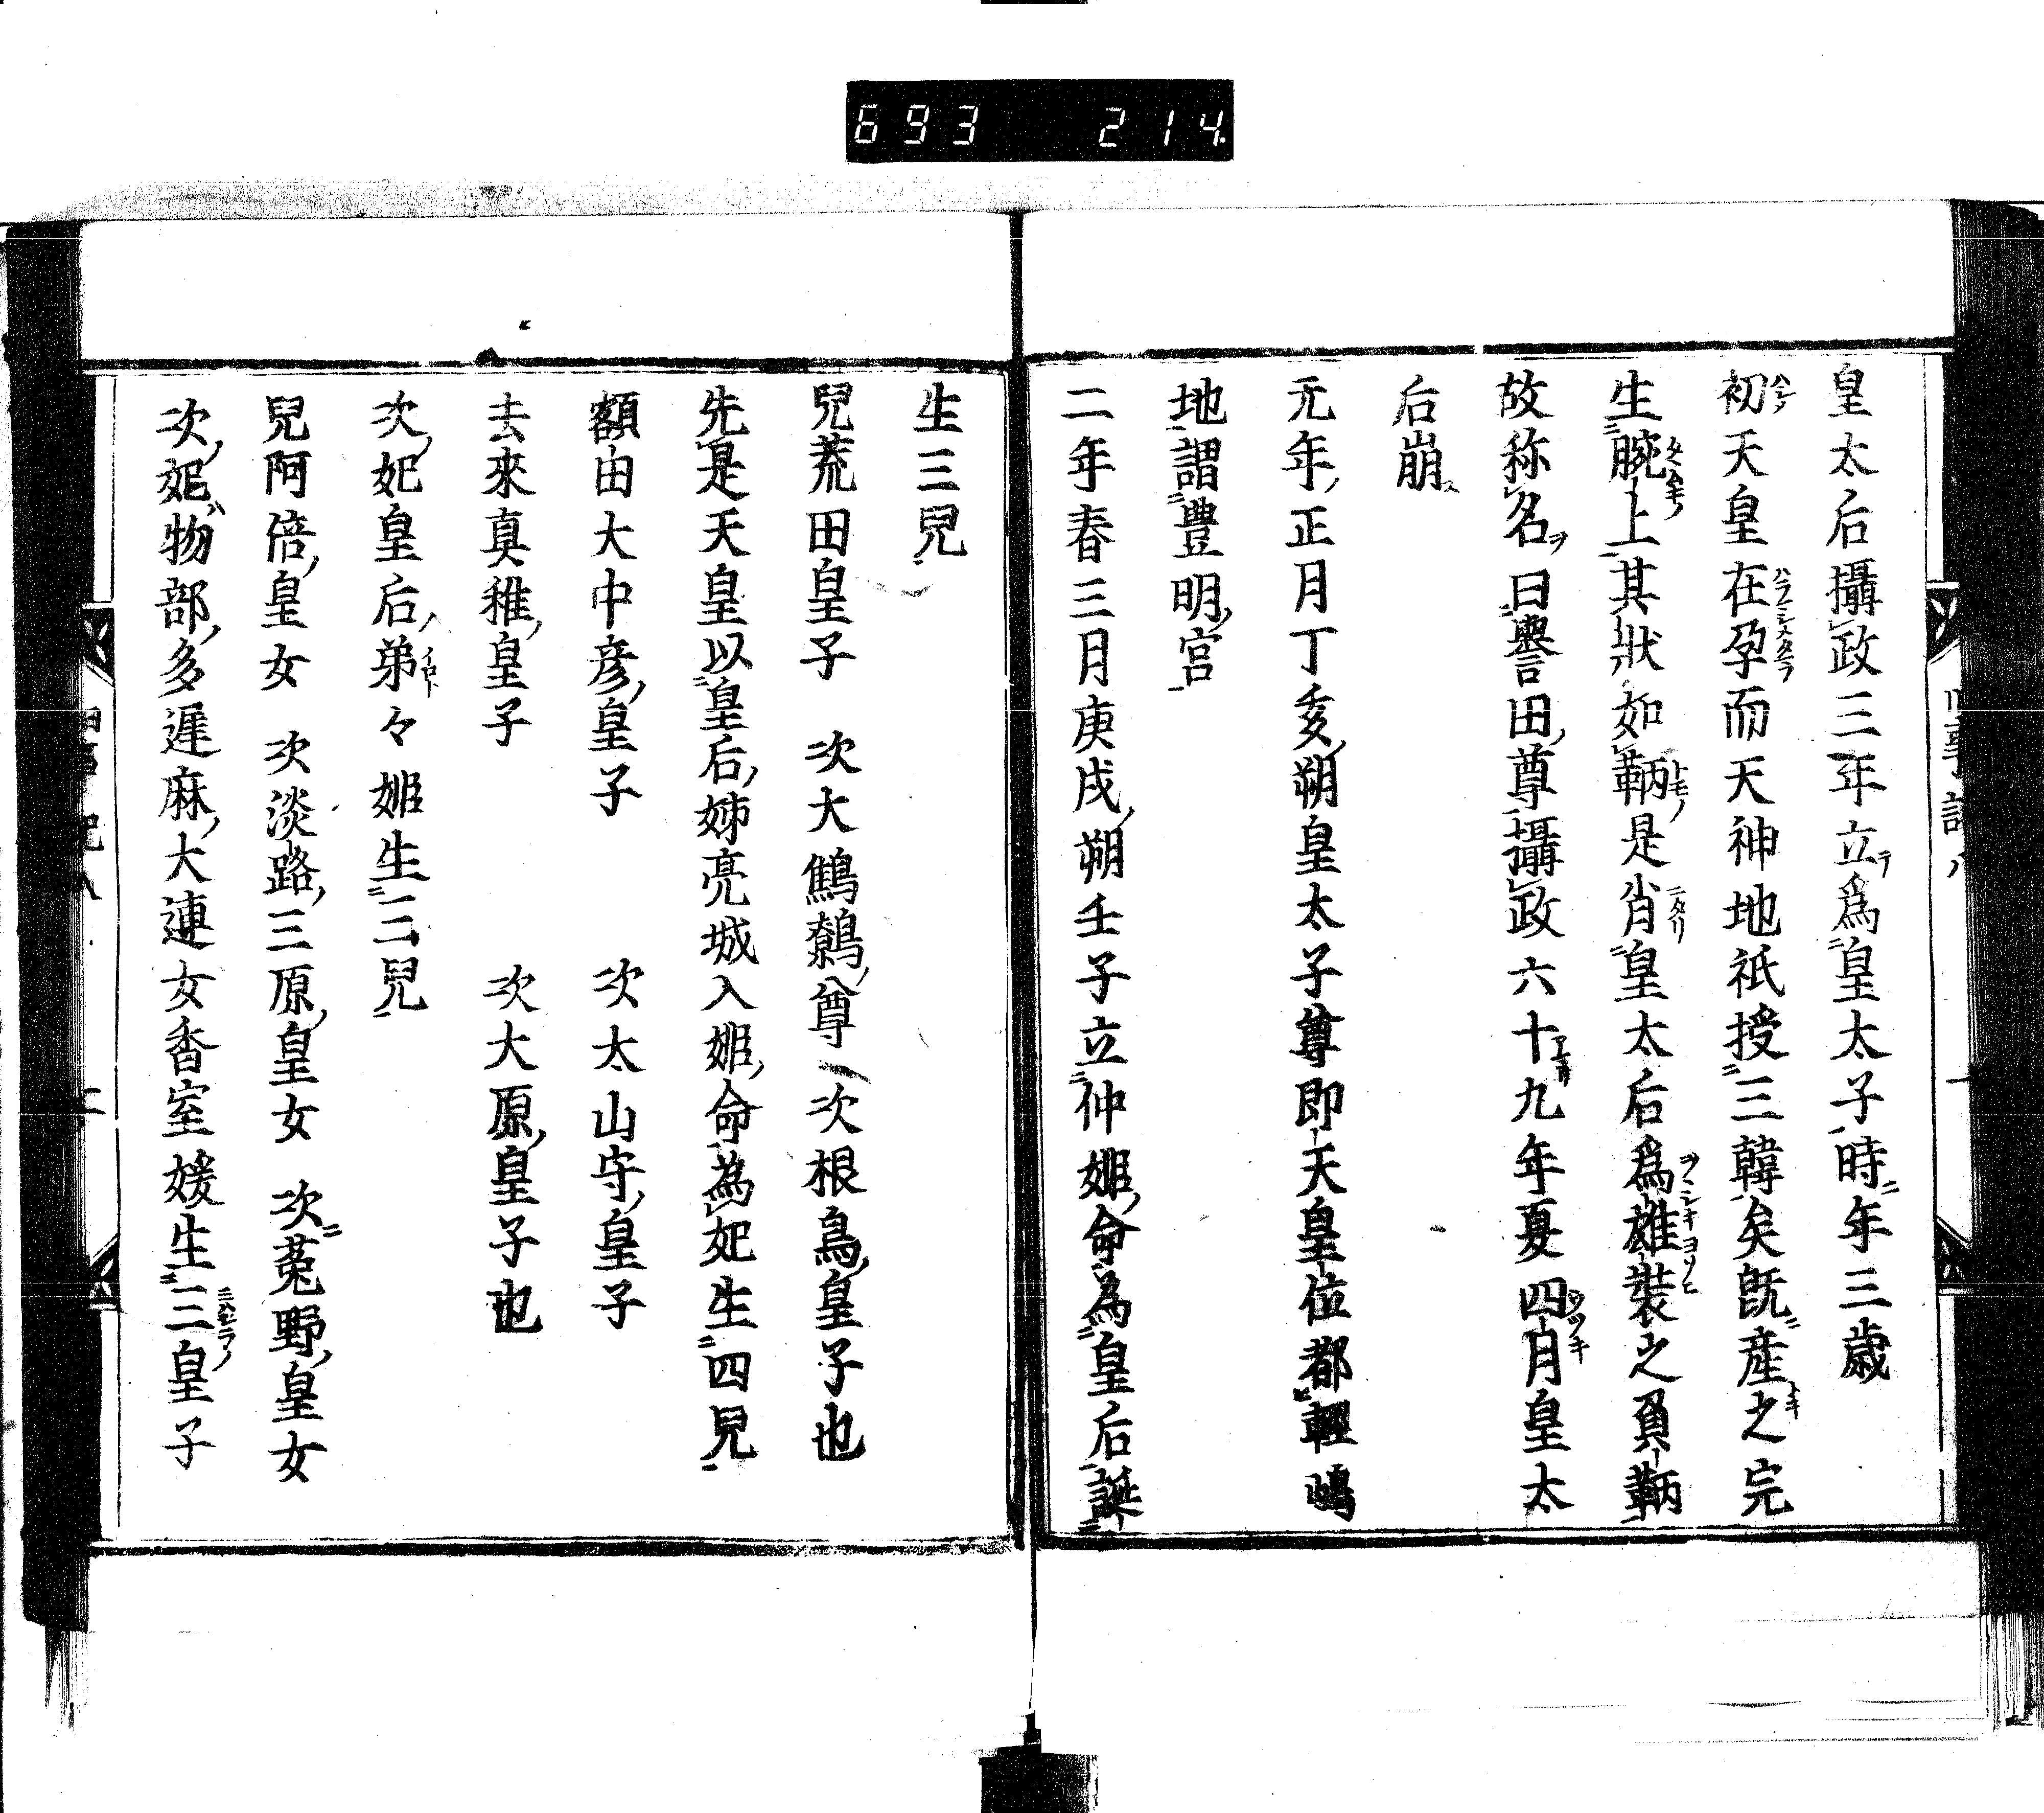 693 214
皇太后攝政三年立爲皇太子時年三歳
初天皇在孕而天神地祇授三韓矣既産之完
生腕上其狀如鞆是肖皇太后爲雄装之負鞆
故称名曰譽田尊攝政六十九年夏四月皇太
后崩
元年正月丁亥朔皇太子尊即天皇位都輕嶋
地謂豊明宮
二年春三月庚戌朔壬子立仲姫命為皇后誕
生三兒
兒荒田皇子 次大鷦鷯尊 次根鳥皇子也
先是天皇以皇后姉亮城入姫命為妃生四兒
額田大中彦皇子 次太山守皇子
去來真稚皇子 次大原皇子也
次妃皇后弟々姫生三兒
兒阿倍皇女 次淡路三原皇女 次菟野皇女
次妃物部多遅麻大連女香室媛生三皇子